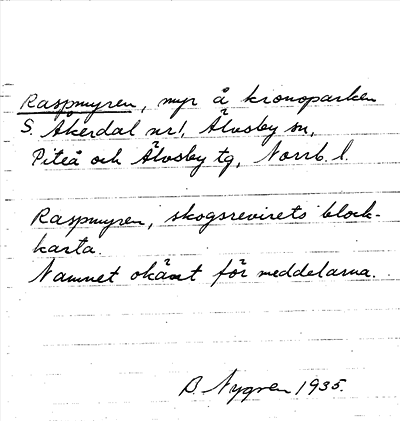 Raspmyren, myr å kronoparken
S. Åkerdal nr 1, Älvsby sn,
Piteå och Älvsby tg, Norrb. l.
Raspmyren, skogsrevirets block-
karta.
Namnet okänt för meddelarna.
B. Nygren 1935.